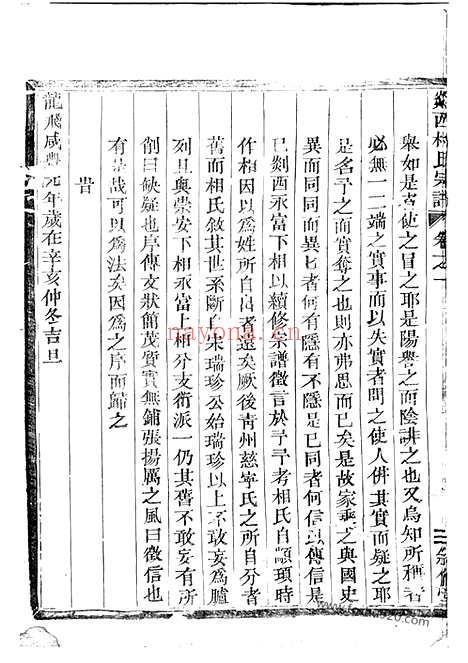 剡西相氏宗譜 卷之一
與如是言使之冒之耶是陽譽之而陰誹之也又烏知所稱者
必無一二端之實事而以失實者間之使人併其實而疑之耶
是名予之而實奪之也則亦弗思而已矣是故家乘之與國史
異而同同而異者何有隱有不隱是已同者何信以傳信是
已剡西永富下相以續修宗譜徵言於予予考相氏自顓頊時
作相因以為姓所自出者遠矣厥後靑州慈寧氏之所自分者
舊而相氏敘其世系斷自宋瑞珍公始瑞珍以上不敢妄為臚
列且與崇安下相永富上相分支衍派一仍其舊不敢妄有所
削曰缺疑也序傳文狀館茂質實無鋪張揚厲之風曰徵信也
有是哉可以為法矣因為之序而歸之
昔
龍飛咸豐元年歲在辛亥仲冬吉旦
nayona.cn
www.zupu.cn